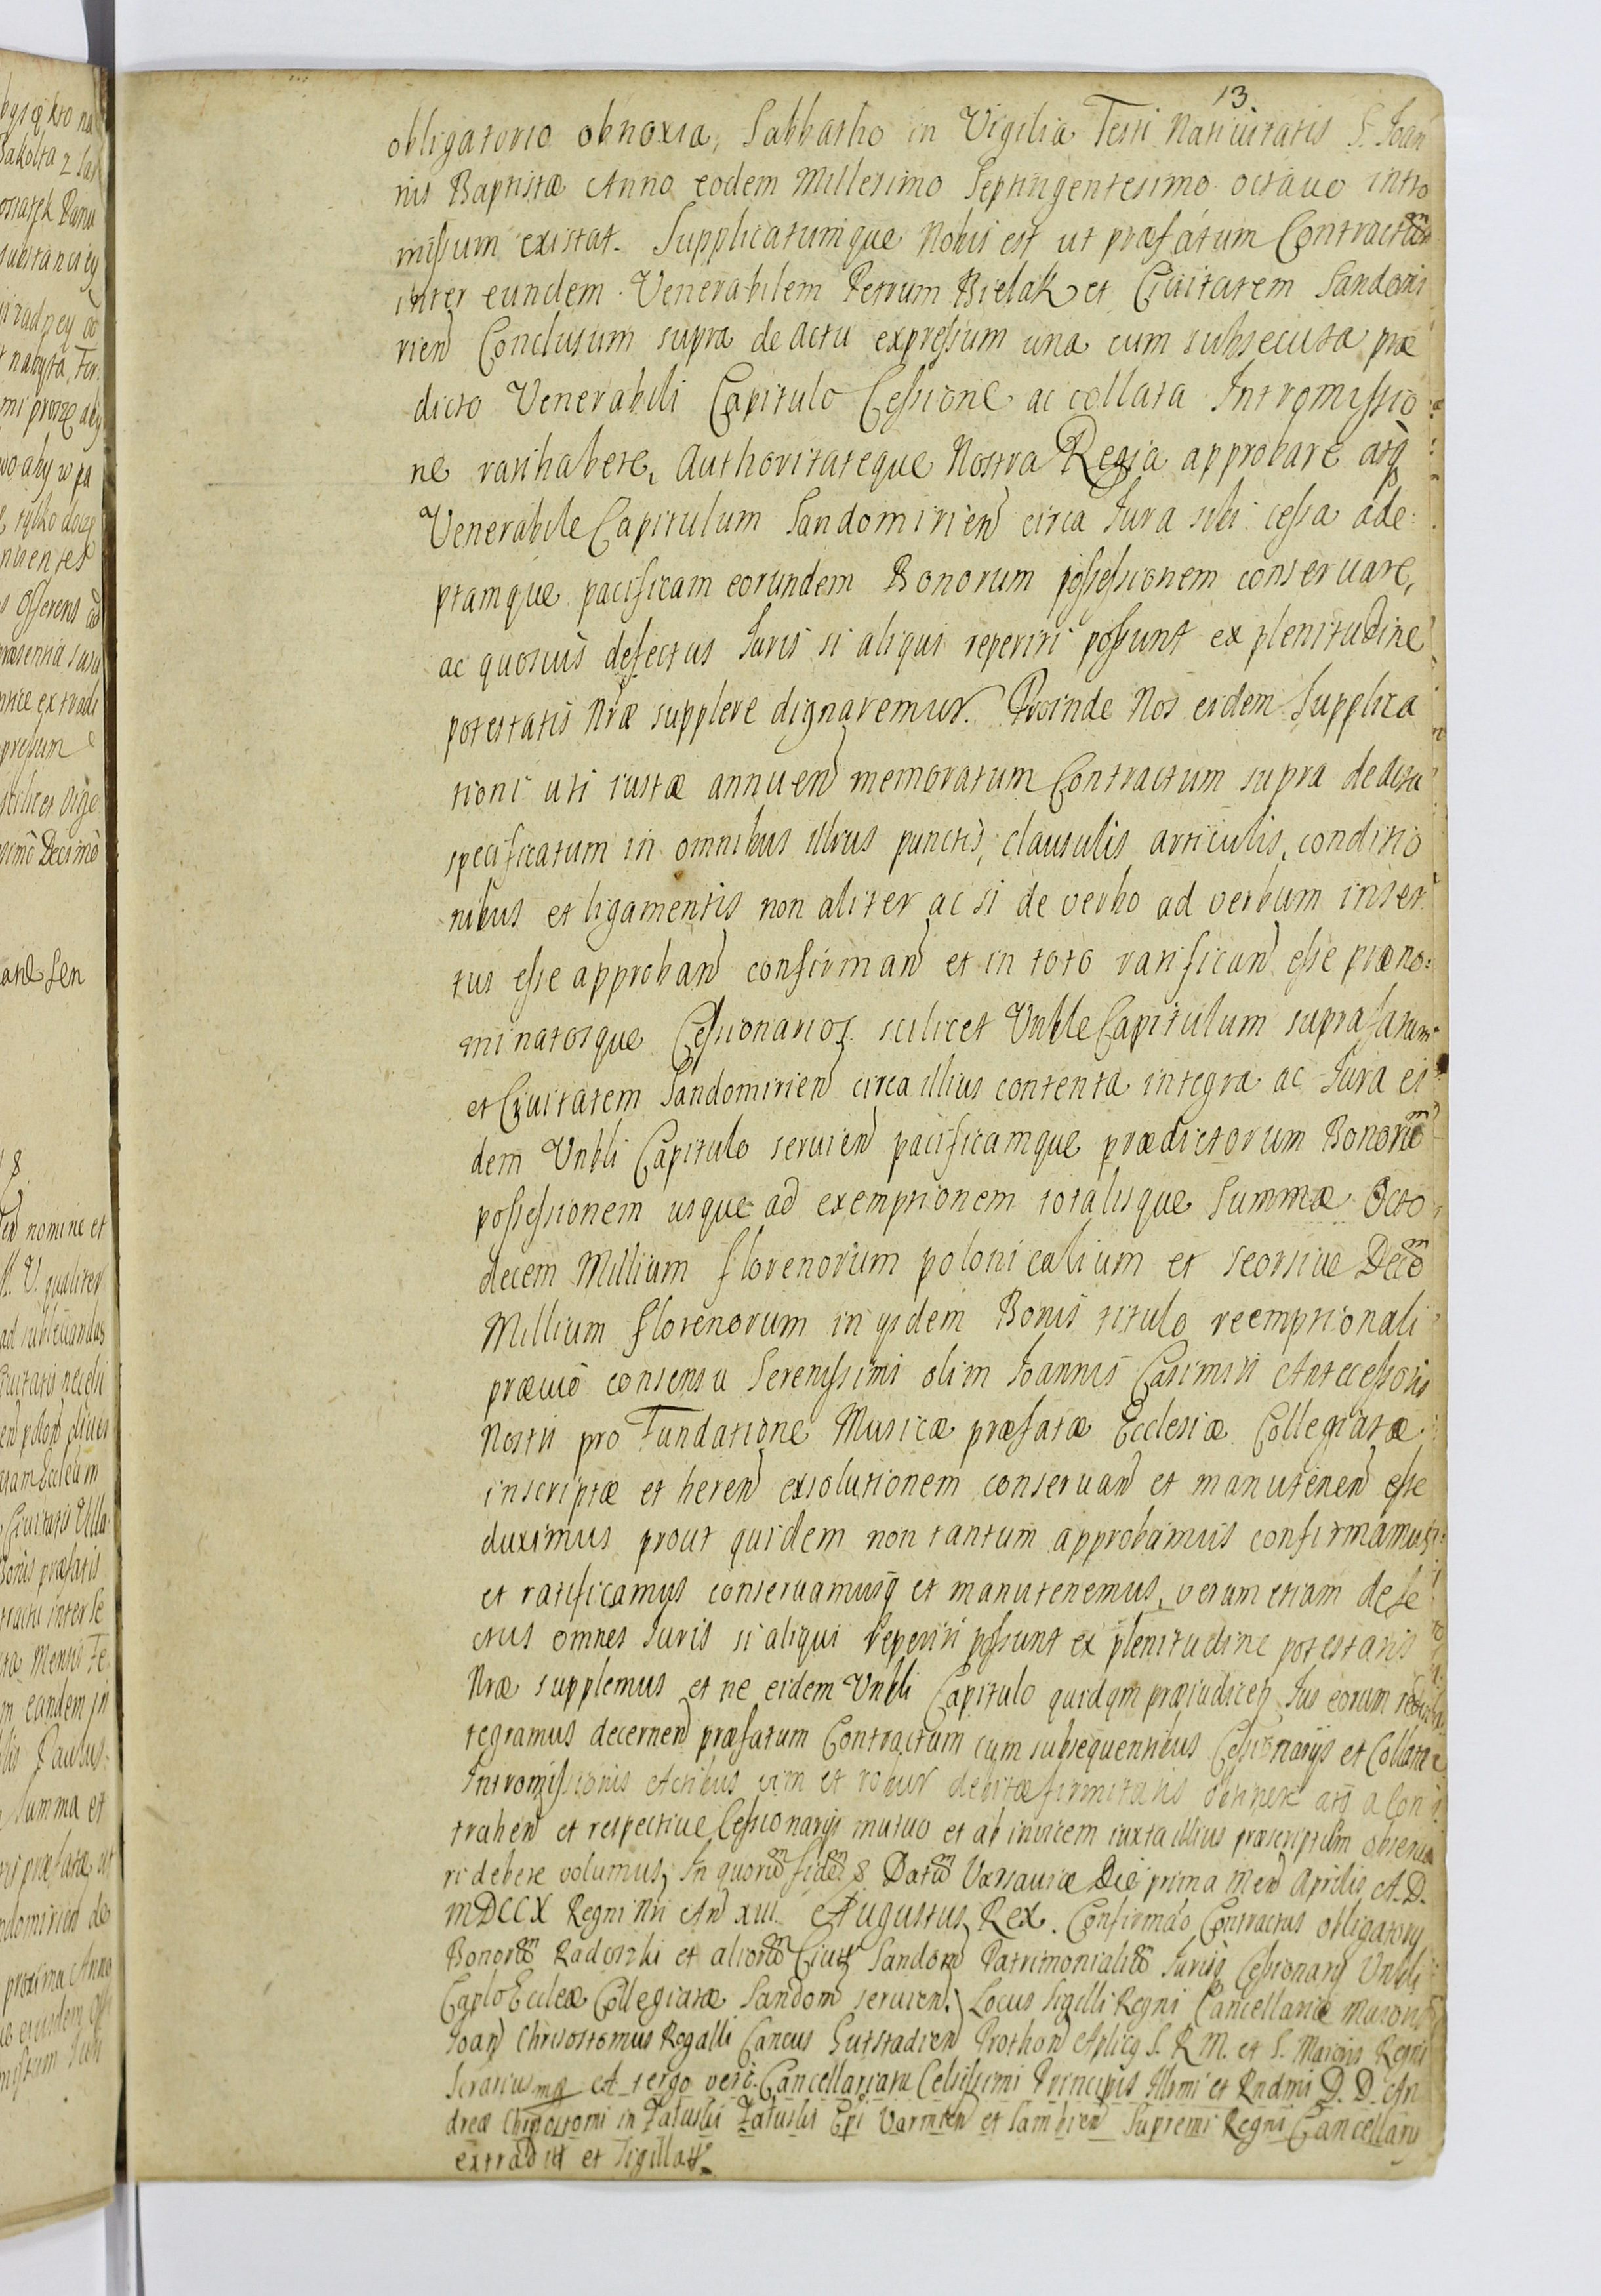 13
obligatorio obnoxia, Sabbatho in Vigilia Festi Nativitatis S. Joan
nis Baptistæ Anno eodem Millesimo Septingentesimo octauo intro
missum existat. Supplicatumque Nobis est ut præfatum Contractum
inter eundem Venerabilem Petrum Bielak et Ciuitatem Sandomi
rien Conclusum supra de actu expressum una cum subsecuta præ
dicto Venerabili Capitulo Cessione ac collata Intromissio
ne ratihabere, Authoritateque Nostra Regia approbare atq
Venerabile Capitulum Sandomirien circa Iura sibi cessa ade:
ptamque pacificam eorundem Bonorum possessionem conseruare,
ac quosuis defectus Iuris si aliqui reperiri possunt ex plenitudine
potestatis Nræ supplere dignaremur. Proinde Nos eidem Supplica
tioni uti iustæ annuen memoratum Contractum supra de actu
specificatum in omnibus illius punctis, clausulis, articulis, conditio
nibus et ligamentis non aliter ac si de verbo ad verbum inser
tus esse approban confirman et in toto ratifican esse præno:
minatosque Cessionarios scilicet Vnble Capitulum suprafatum
et Ciuitatem Sandomirien circa illius contenta integra ac Iura ei
dem Vnbli Capitulo seruien pacificamque prædictorum Bonorum
possessionem usque ad exemptionem totalisque Summæ Octo
decem Millium florenorum polonicalium et seorsiue Decem
Millium florenorum in ysdem Bonis titulo reemptionali
præuio consensu Serenissimi olim Ioannis Casimiri Antecessoris
Nostri pro Fundatione Musicæ præfatæ Ecclesiæ Collegiatæ
inscriptæ et heren exsolutionem conseruan et manutenen esse
duximus prout quidem non tantum approbamus confirmamus
et ratificamus conseruamusq et manutenemus, verum etiam defe
ctus omnes Iuris si aliqui reperiri possunt ex plenitudine potestatis
Nræ supplemus et ne eidem Vnbli Capitulo quidqm præiudicet Ius eorum
tegramus decernen præfatum Contractum cum subsequentibus Cessionarys et Collatæ
Intromissionis Actibus vim et robur debitæ firmitatis obtinere atq a Con
trahen et respectiue Cessionarys mutuo et ab inuicem iuxta illius præscriptum obserua
ri debere volumus, In quorum fidem & Datum Varsauiæ Die prima Men Aprilis A.D.
MDCCX Regni Nri An XIII. Augustus Rex. Confirmao Contractus obligatory
Bonorum Radoszki et aliorum Ciuit Sandom Patrimonialium Iurisq Cessionary Vnbli
Caplo Eccleæ Collegiatæ Sandom seruien. Locus Sigilli Regni Cancellariæ Maioris
Ioan Chrisostomus Regalli Cancus Gutstadien Prothon Aplicq S. R. M. et S. Maioris Regni
Scrarius mp A tergo vero. Cancellariatu Celsissimi Principis Illmi et Rndmi D. D. An
dreæ Chrisostomi in Zaluski Zaluski Epi Varmien et Sambien Supremi Regni Cancellary
extradit et Sigillat.